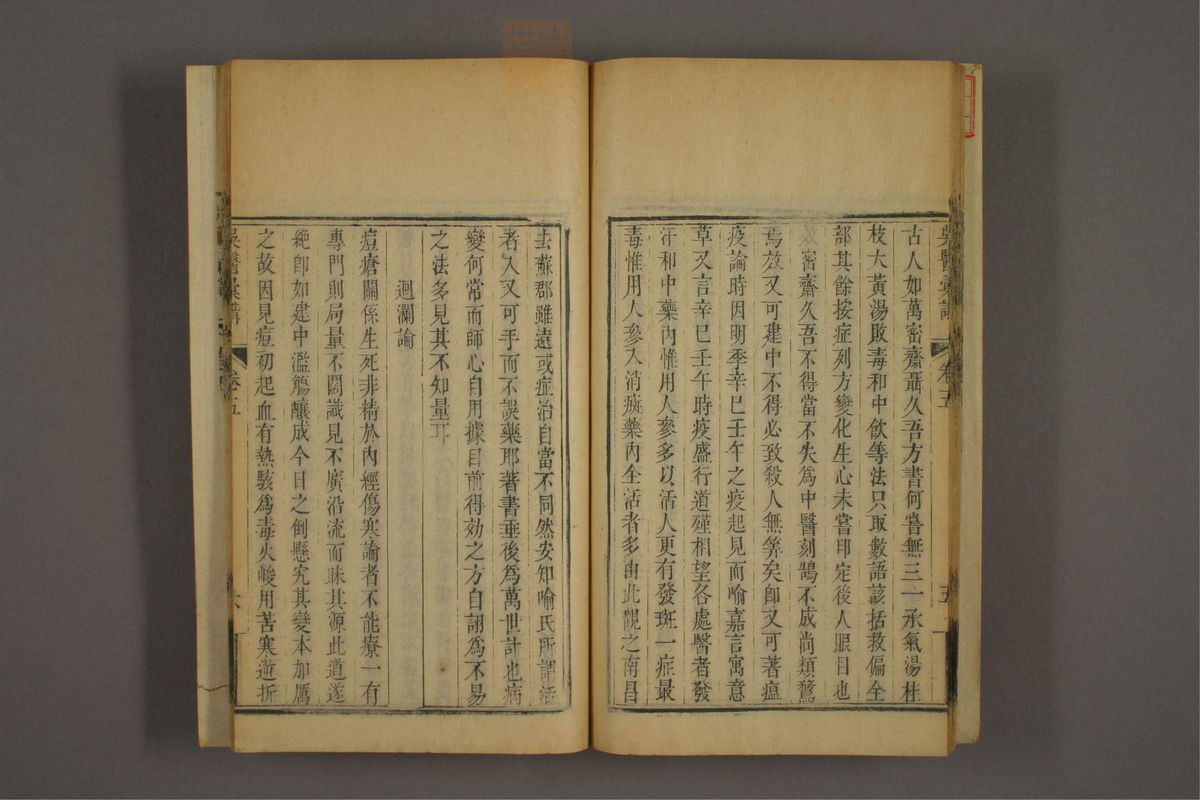 吳醫彙講
卷五
五
古人如萬密齋聶久吾方書何嘗無三一承氣湯桂
枝大黃湯敗毒和中飲等法只取數語該括救偏全
部其餘按症列方變化生心未嘗印定後人眼目也
效密齋久吾不得當不失爲中醫刻鵠不成尚類鶩
焉效又可建中不得必致殺人無筭矣卽又可著瘟
疫論時因明季辛巳壬午之疫起見而喻嘉言寓意
草又言辛巳壬午時疫盛行道殣相望各處醫者發
汗和中藥內惟用人參多以活人更有發斑一症最
毒惟用人參入消斑藥內全活者多由此觀之南昌
去蘇郡雖遠或症治自當不同然安知喻氏所謂活
者入又可手而不誤藥耶著書垂後爲萬世計也病
變何常而師心自用據目前得効之方自詡爲不易
之法多見其不知量耳
迴瀾論
痘瘡關係生死非精於內經傷寒論者不能療一有
專門則局量不闊識見不廣沿流而昧其源此道遂
絕卽如建中濫觴釀成今日之倒懸究其變本加厲
之故因見痘初起血有熱駭爲毒火峻用苦寒逆折
吳醫彙講
卷五
六